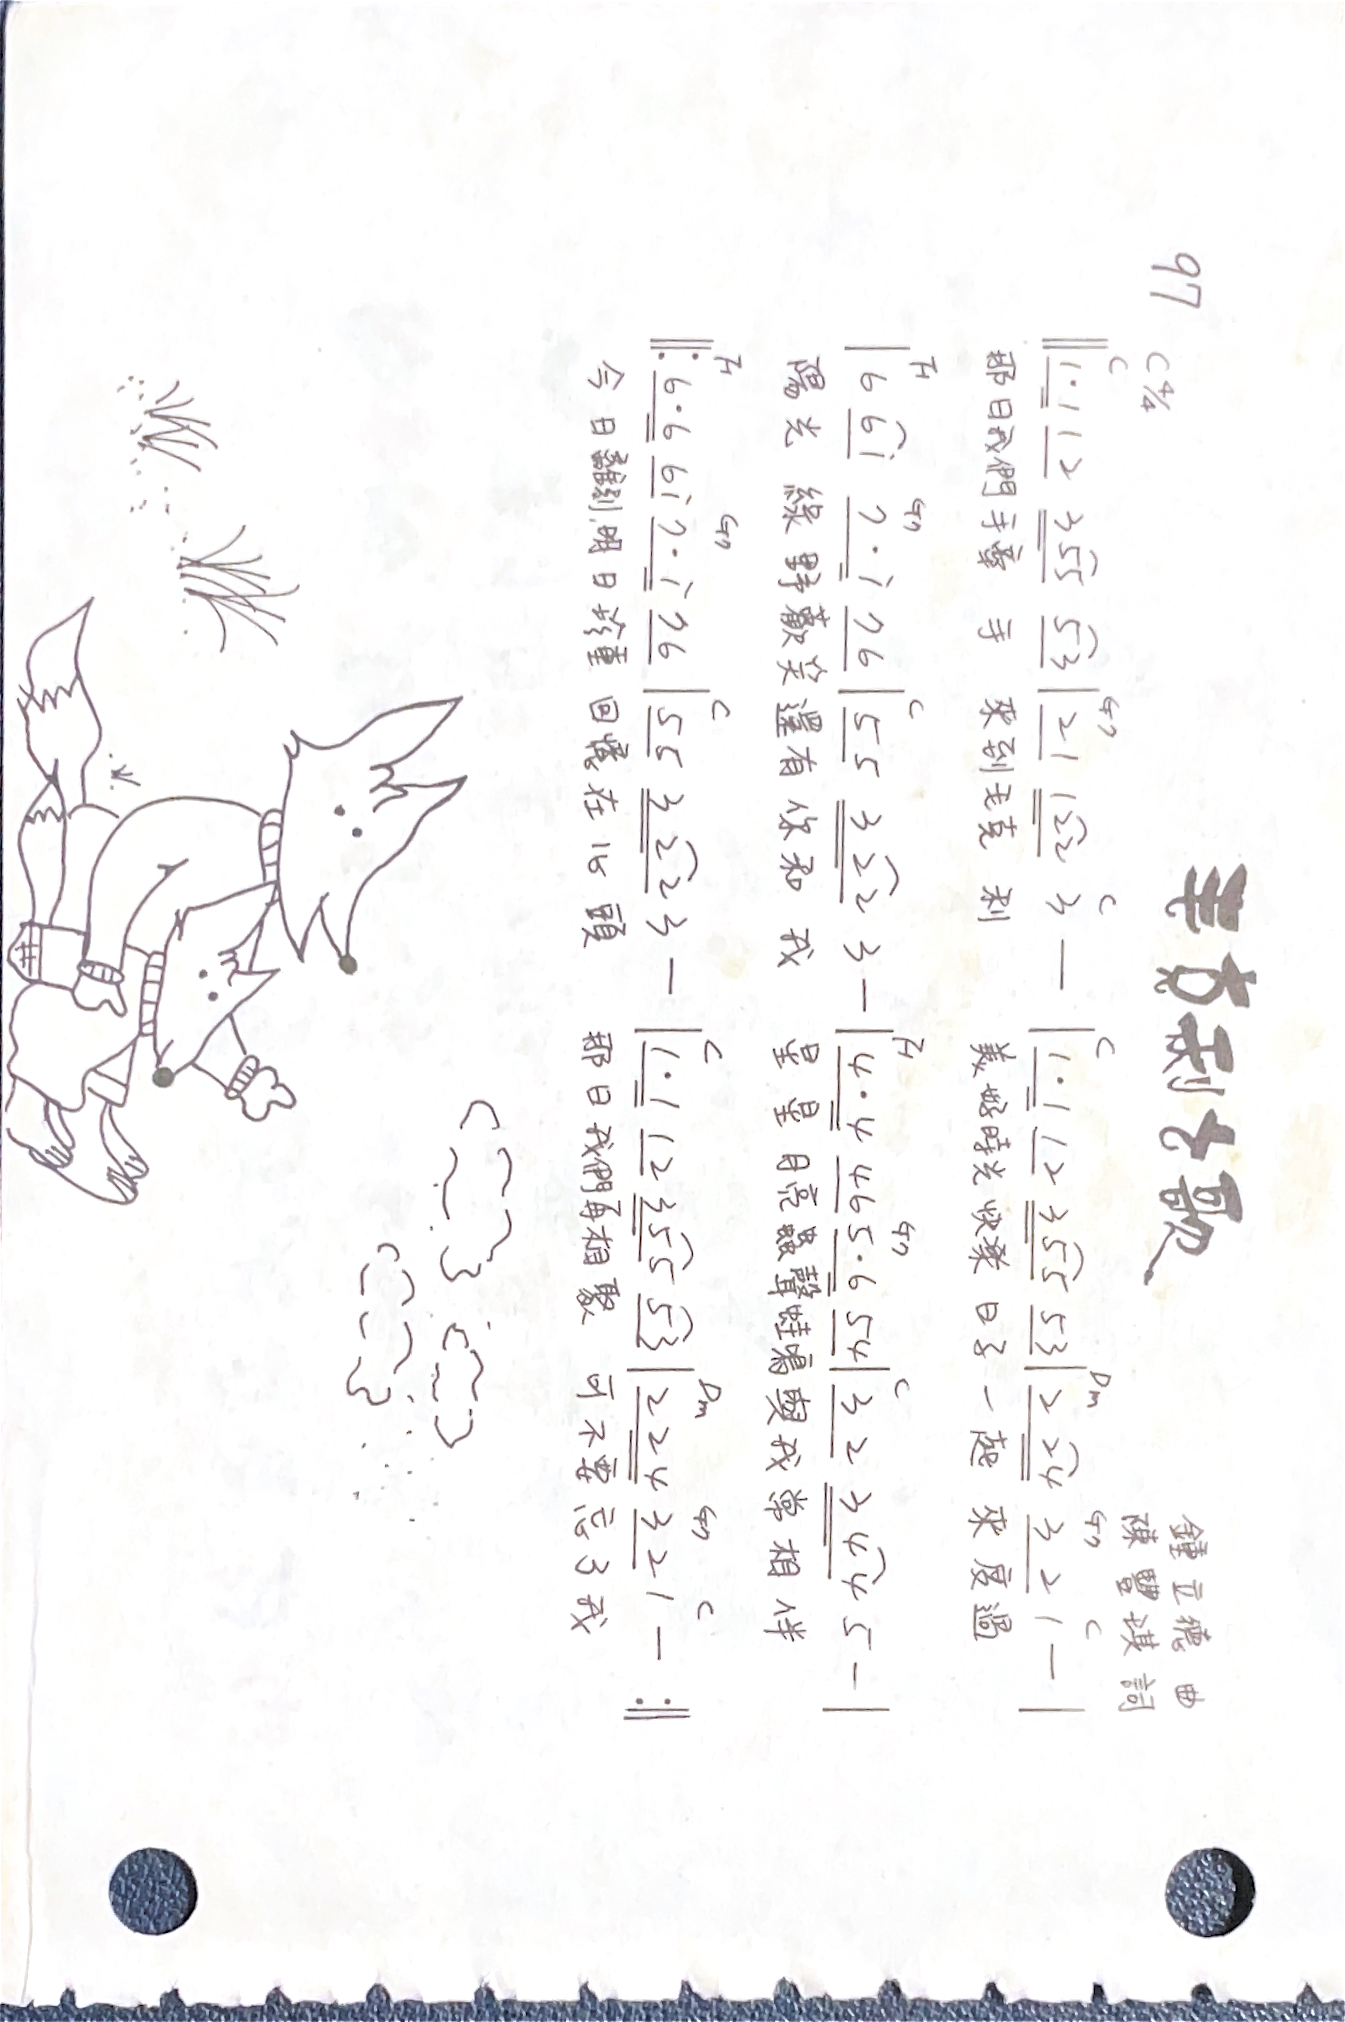 毛克利之歌
97
C 4/4
鍾立德 曲
陳豐琪 詞
C G7 C C Dm G7 C
‖1·1 12 355 53|21 122 3 —|1·1 12 355 53|2 24 3 2 1 —|
那日我們手牽 手 來到毛克 利 美好時光快樂 日子一起 來度過
F G7 C F G7 C
|6 6i 7·i 76|55 322 3—|4·4 465·6 54|32 344 5—|
陽光 綠野歡笑還有你和 我 星星月亮蟲聲蛙鳴與我常相伴
F G7 C C Dm G7 C
‖:6·6 6i 7·i 76|55 322 3 —|1·1 12 355 53|224 321 — :‖
今日離別,明日珍重 回憶在心頭 那日我們再相聚 可不要忘了我